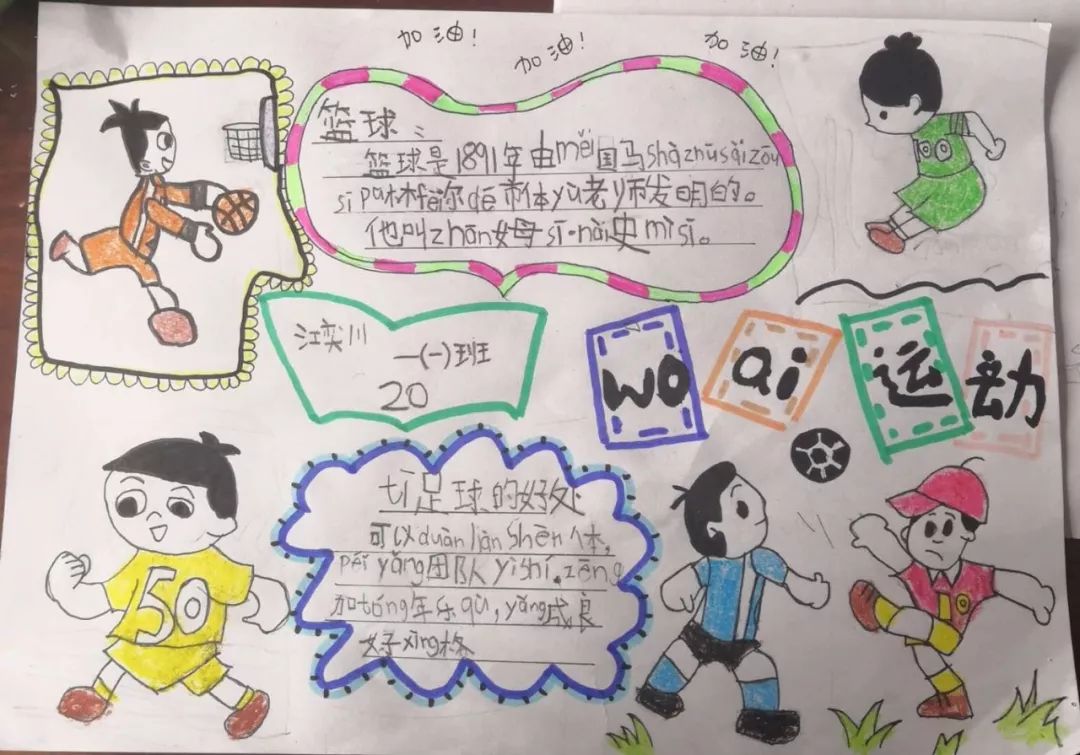 加油!
加油!
加油!
篮球:
篮球是1891年由měi国马shàzhūsàizōu
sī pu林 dē 市体yù老师发明的。
他叫zhān姆sī·nài史mìsī。
江奕川
一(一)班
20
wo ai 运动
tī足球的好处
可以duàn liàn shēn体,
péi yǎng团队yì shí.zēng
加tóng年乐qù,yǎng成良
好xìng格
50